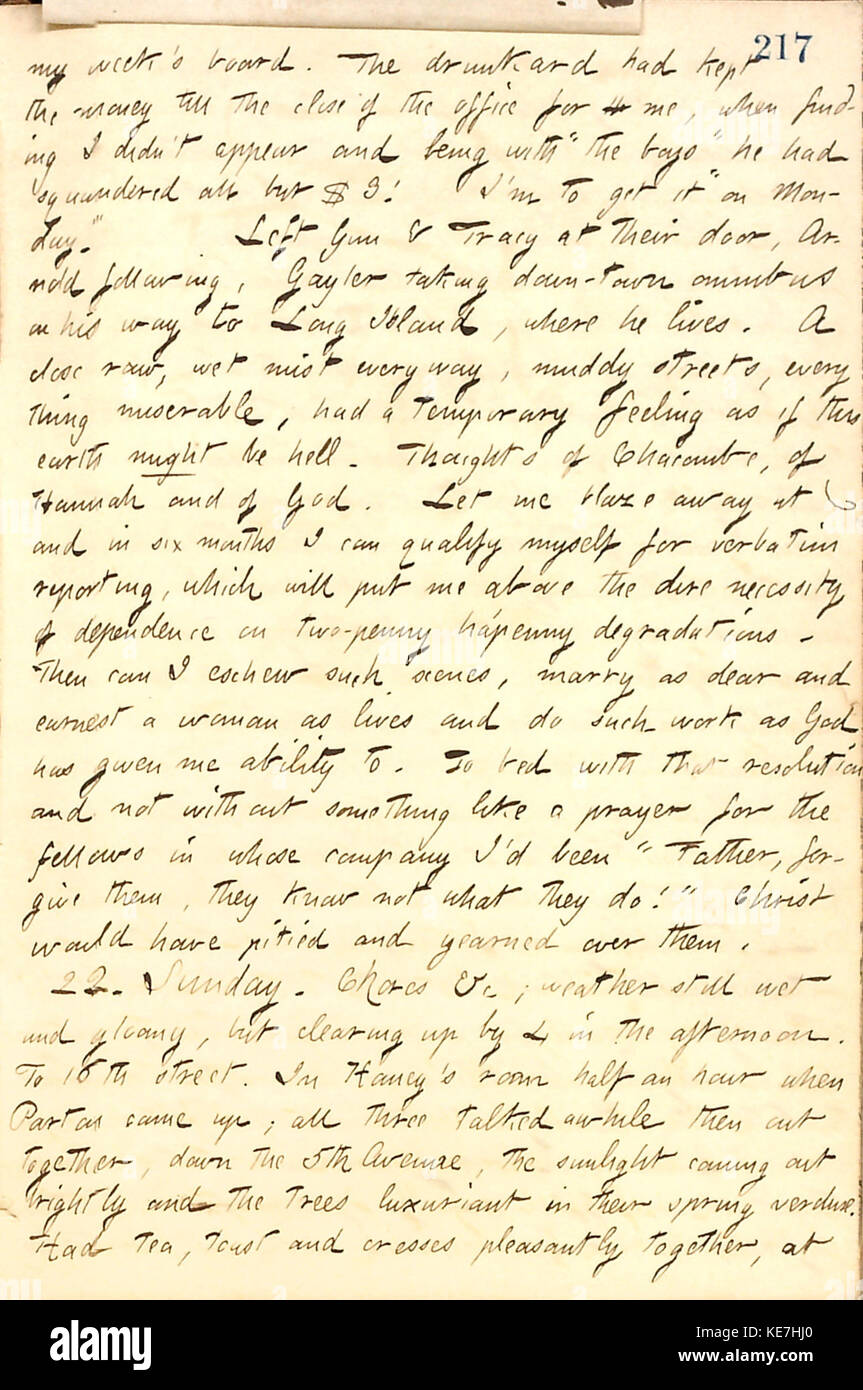 217
my week's board. The drunkard had kept
the money till the close of the office for me, when find-
ing I didn't appear and being with "the boys" he had
squandered all but $3! I'm to get it "on Mon-
day."      Left Gun & Tracy at their door, Ar-
nold following, Gayler taking down-town omnibus
on his way to Long Island, where he lives. A
close raw, wet mist everyway, muddy streets, every
thing miserable, had a temporary feeling as if this
earth might be hell. Thoughts of Chacombe, of
Hannah and of God. Let me blaze away at
and in six months I can qualify myself for verbatim
reporting, which will put me above the dire necessity
of dependence on two-penny ha'penny degradations.
Then can I eschew such scenes, marry as dear and
earnest a woman as lives and do such work as God
has given me ability to. To bed with that resolution
and not without something like a prayer for the
fellows in whose company I'd been "Father, for-
give them, they know not what they do!" Christ
would have pitied and yearned over them.
22. Sunday. Chores &c; weather still wet
and gloomy, but clearing up by 4 in the afternoon.
To 16th street. In Haney's room half an hour when
Parton came up; all three talked awhile then out
together, down the 5th Avenue, the sunlight coming out
brightly and the trees luxuriant in their spring verdure.
Had tea, toast and cresses pleasantly together, at
alamy
Image ID: KE7HJ0
www.alamy.com